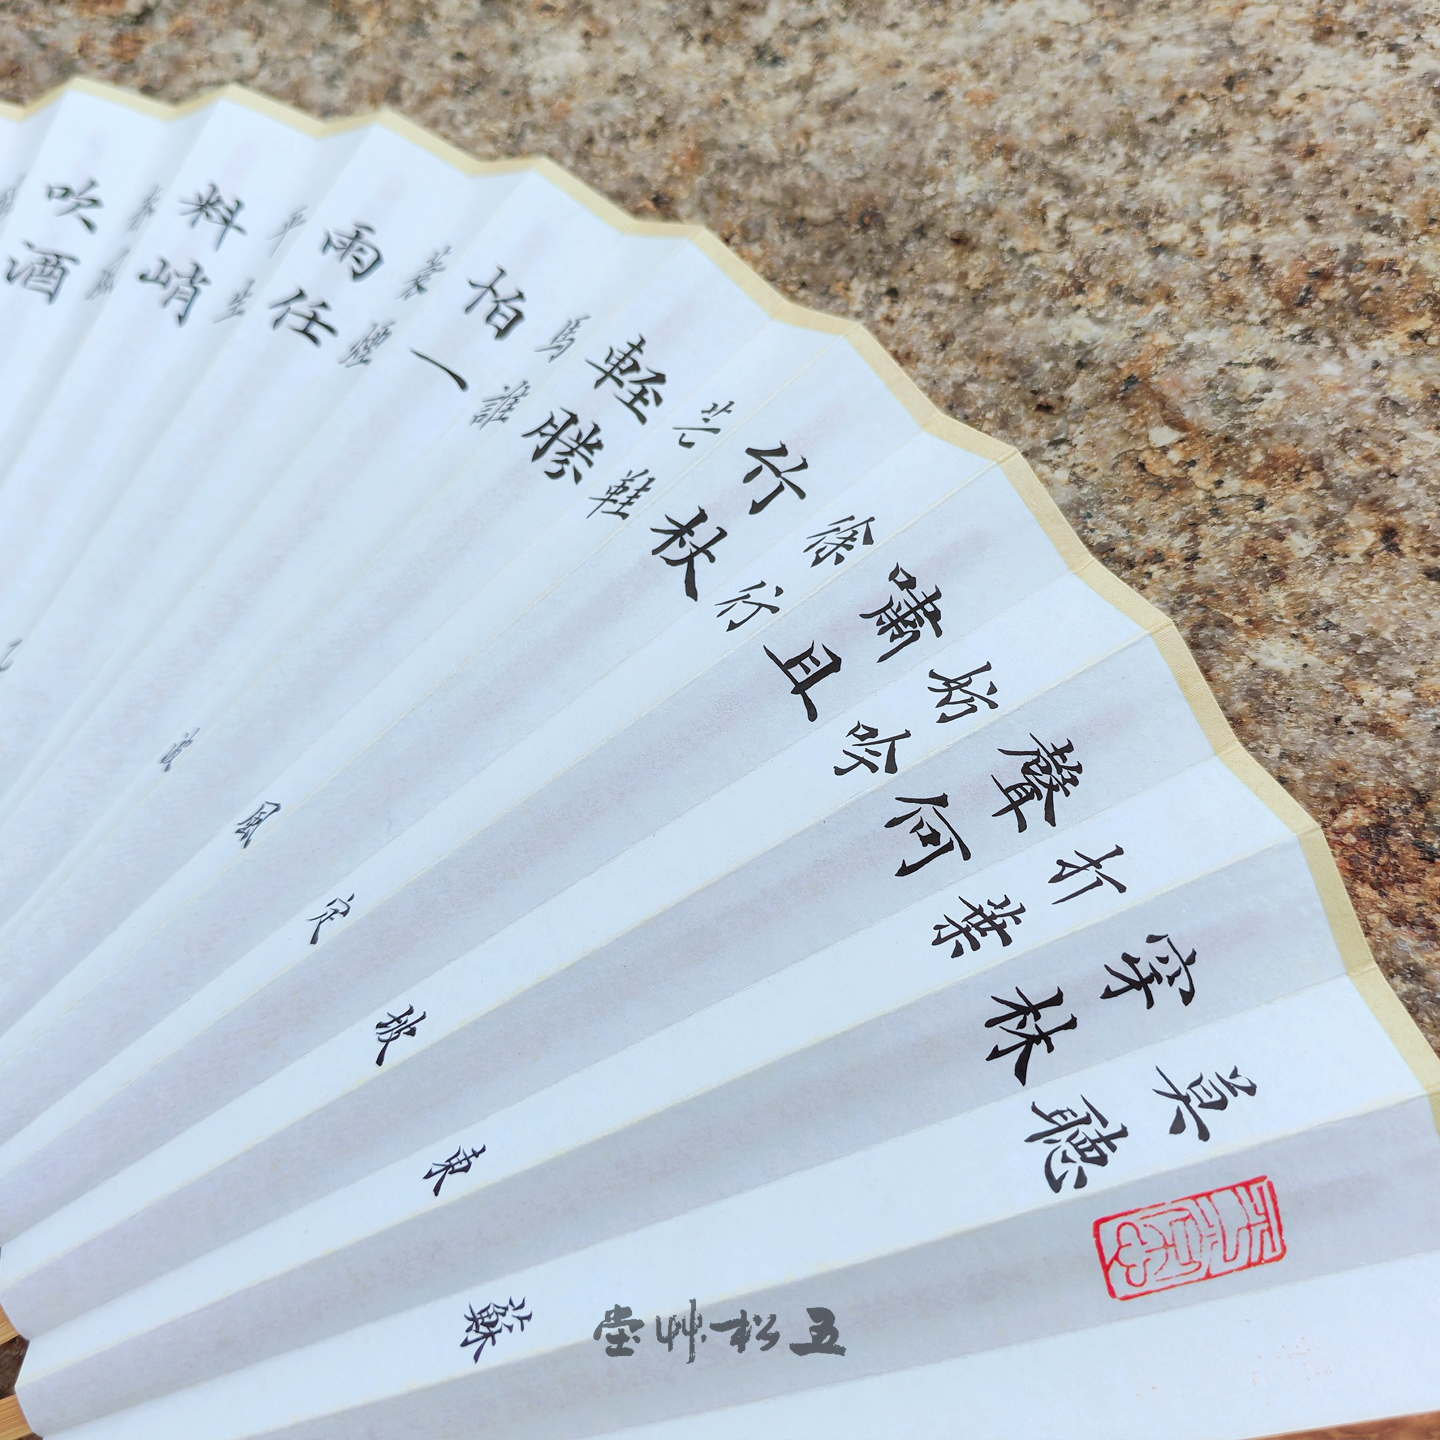 莫聽
穿林
打葉
聲何
妨吟
嘯且
徐行
竹杖
芒鞋
輕勝
馬誰
怕一
蓑煙
雨任
平生
料峭
春風
吹酒
蘇
東
坡
定
風
波
五松艸堂